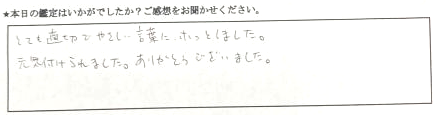 ★本日の鑑定はいかがでしたか？ご感想をお聞かせください。
とても適切でやさしい言葉に、ホッとしました。
元気付けられました。ありがとうございました。